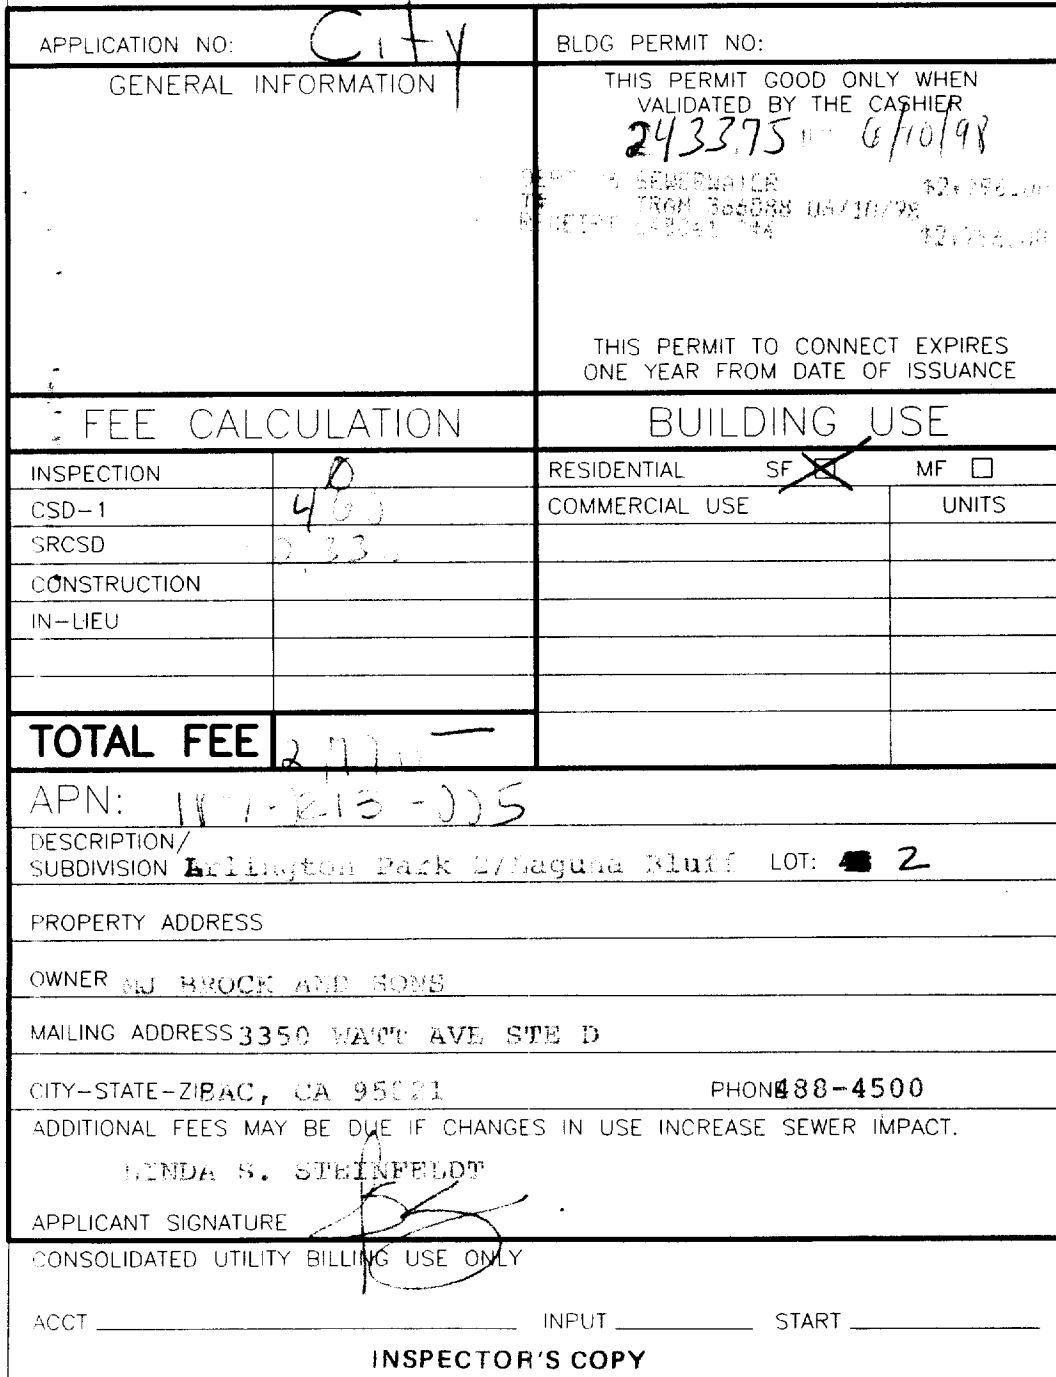 APPLICATION NO: City
BLDG PERMIT NO:
GENERAL INFORMATION
THIS PERMIT GOOD ONLY WHEN
VALIDATED BY THE CASHIER
243375 6/10/98
SEWERWATER
06/10/98
THIS PERMIT TO CONNECT EXPIRES
ONE YEAR FROM DATE OF ISSUANCE
FEE CALCULATION
BUILDING USE
INSPECTION
RESIDENTIAL SF MF
CSD-1
COMMERCIAL USE UNITS
SRCSD
CONSTRUCTION
IN-LIEU
TOTAL FEE
APN:
DESCRIPTION/
SUBDIVISION Arlington Park 2/Laguna Bluff LOT: 2
PROPERTY ADDRESS
OWNER MJ BROCK AND SONS
MAILING ADDRESS 3350 WATT AVE STE D
CITY-STATE-ZIP SAC, CA 95821 PHONE 488-4500
ADDITIONAL FEES MAY BE DUE IF CHANGES IN USE INCREASE SEWER IMPACT.
LINDA S. STEINFELDT
APPLICANT SIGNATURE
CONSOLIDATED UTILITY BILLING USE ONLY
ACCT INPUT START
INSPECTOR'S COPY